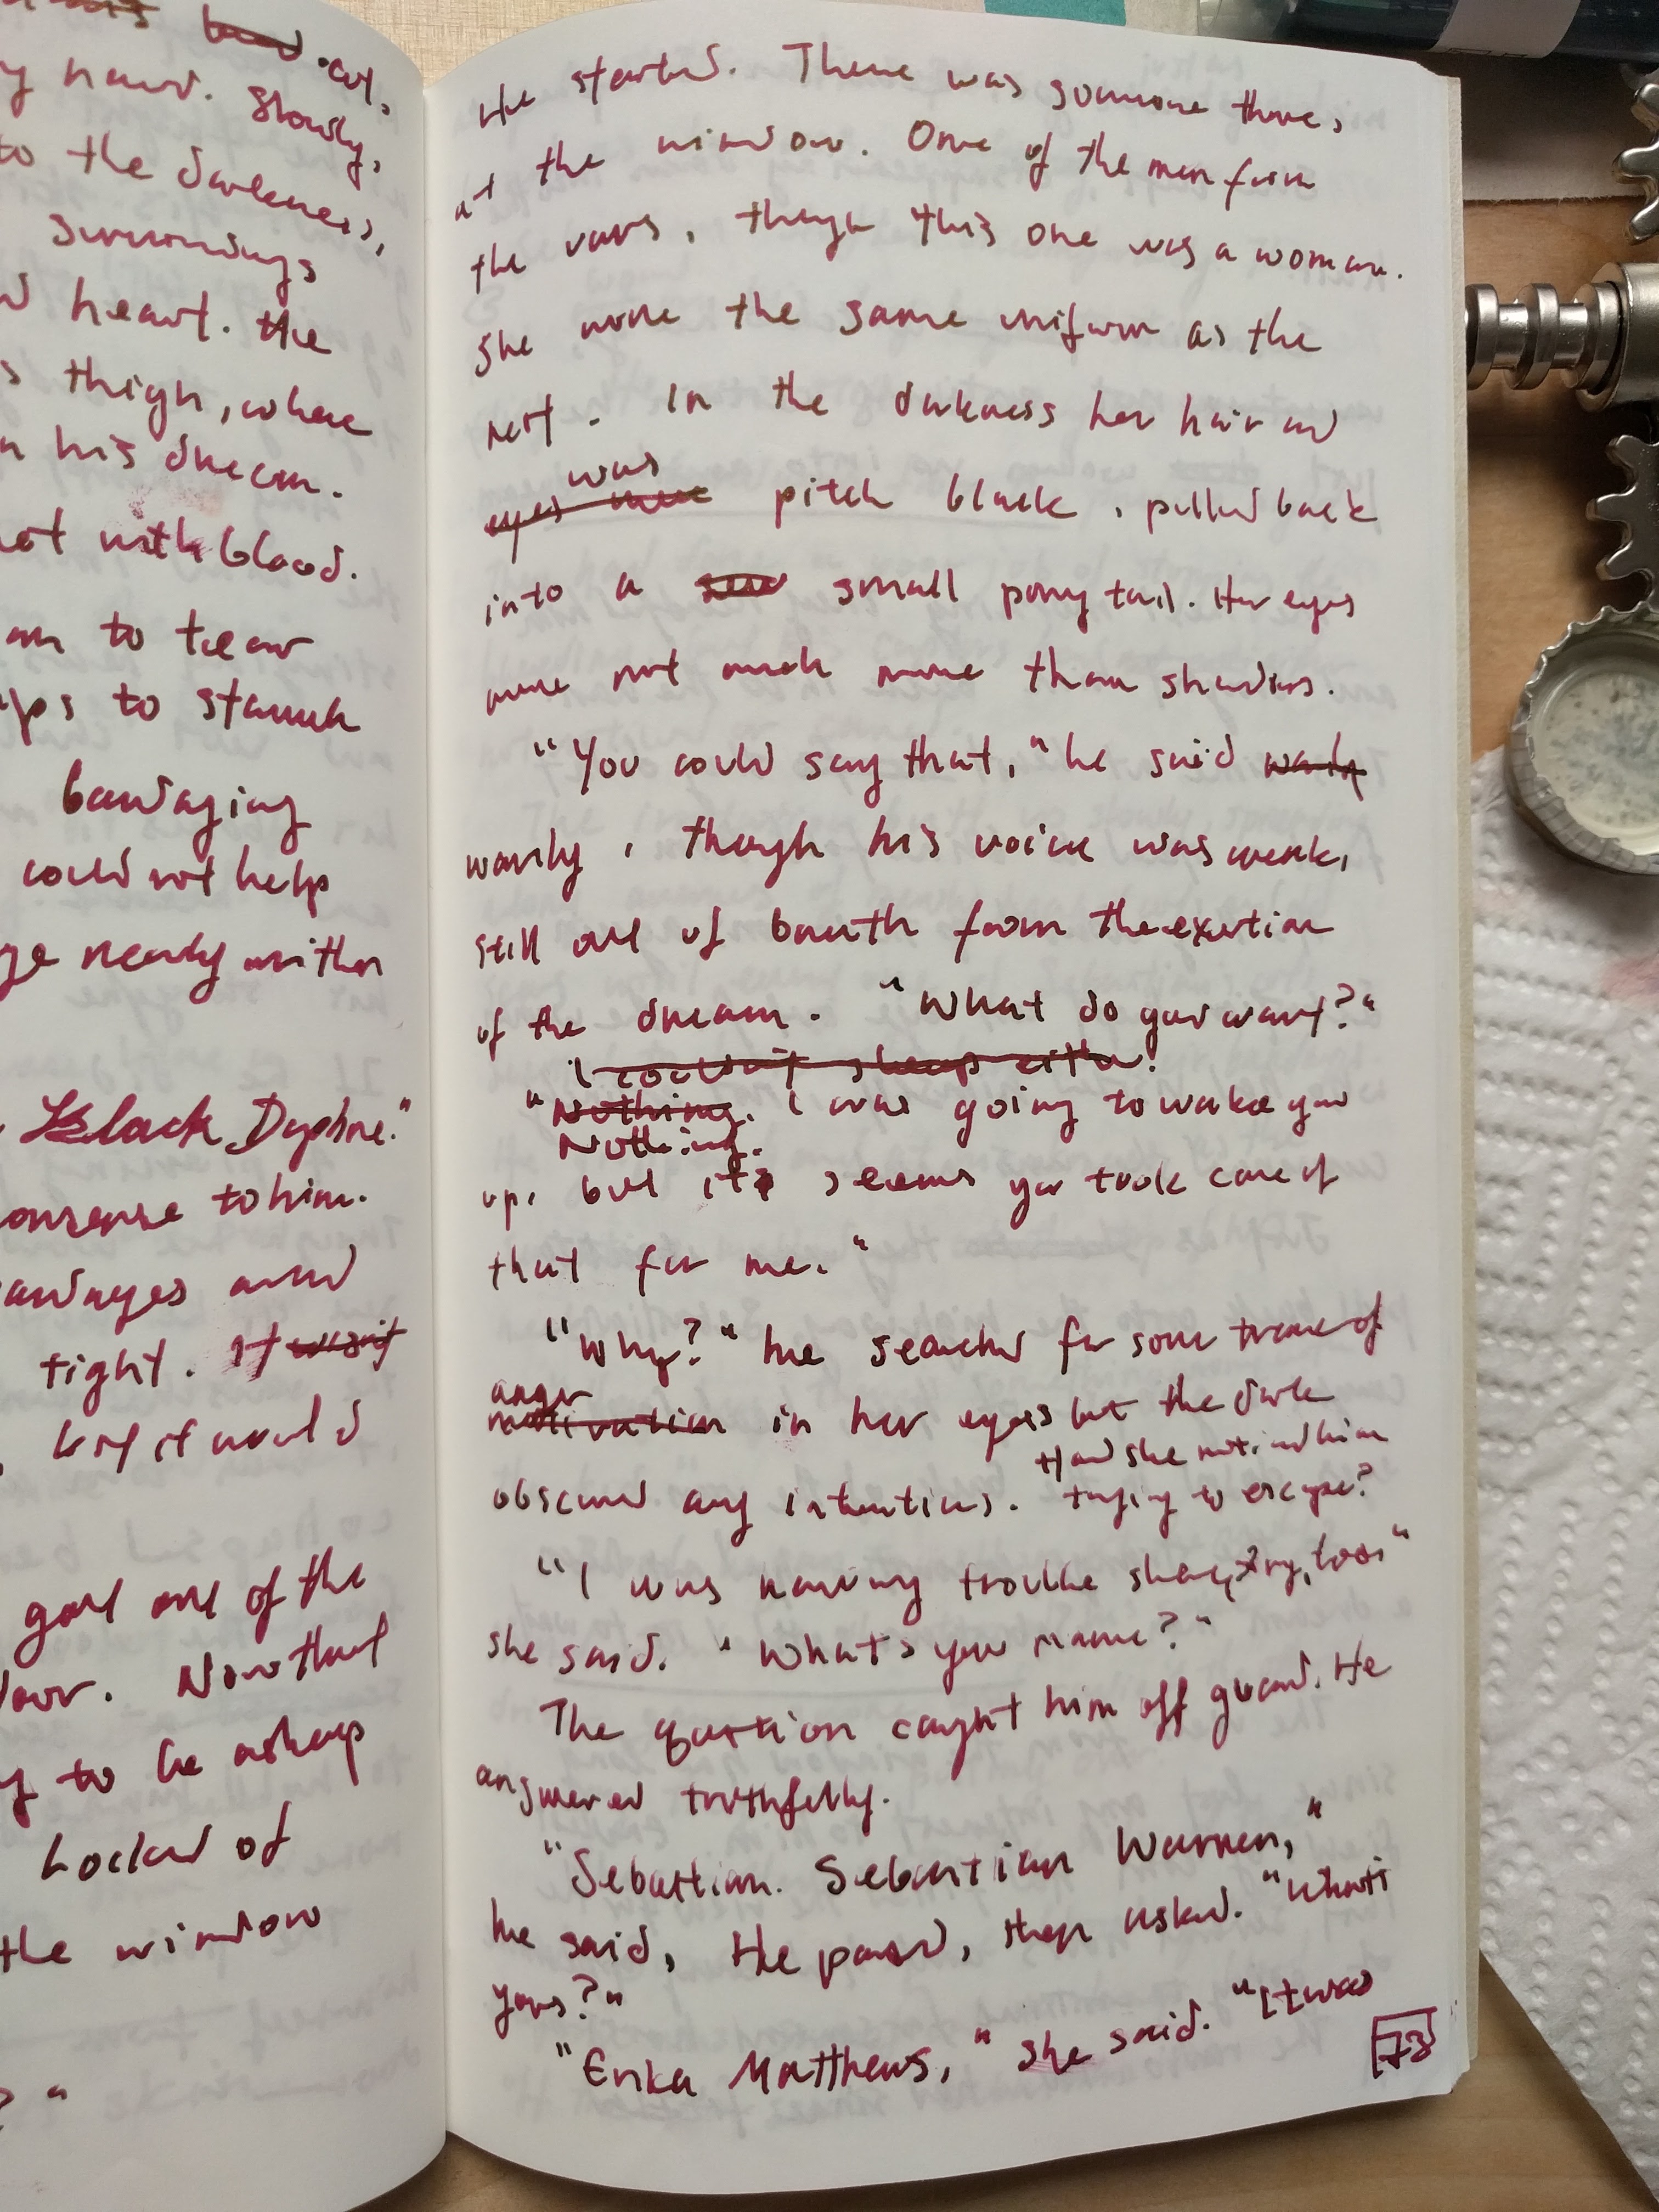 cut,
hand. Slowly,
to the darkness,
surroundings
heart. He
thigh, where
his dream.
with blood.
to tear
to staunch
bandaging
could not help
nearly within
Black Daphne."
to him.
and
tight. It wasn't
but it would
out of the
Now that
to be asleep
looked
the window
He started. There was someone there,
at the window. One of the men from
the vans, though this one was a woman.
She wore the same uniform as the
rest. In the darkness her hair and
was
eyes were pitch black, pulled back
into a small pony tail. Her eyes
were not much more than shadows.
"You could say that," he said warily
warily, though his voice was weak,
still out of breath from the exertion
of the dream. "What do you want?"
I couldn't sleep either.
"Nothing. I was going to wake you
Nothing.
up, but it seems you took care of
that for me."
"Why?" He searched for some trace of
anger
motivation in her eyes but the dark
Had she noticed him
obscured any intentions. trying to escape?
"I was having trouble sleeping, too,"
she said. "What's your name?"
The question caught him off guard. He
answered truthfully.
"Sebastian. Sebastian Warren,"
he said, He paused, then asked. "What's
yours?"
"Erika Matthews," she said. "It was
73